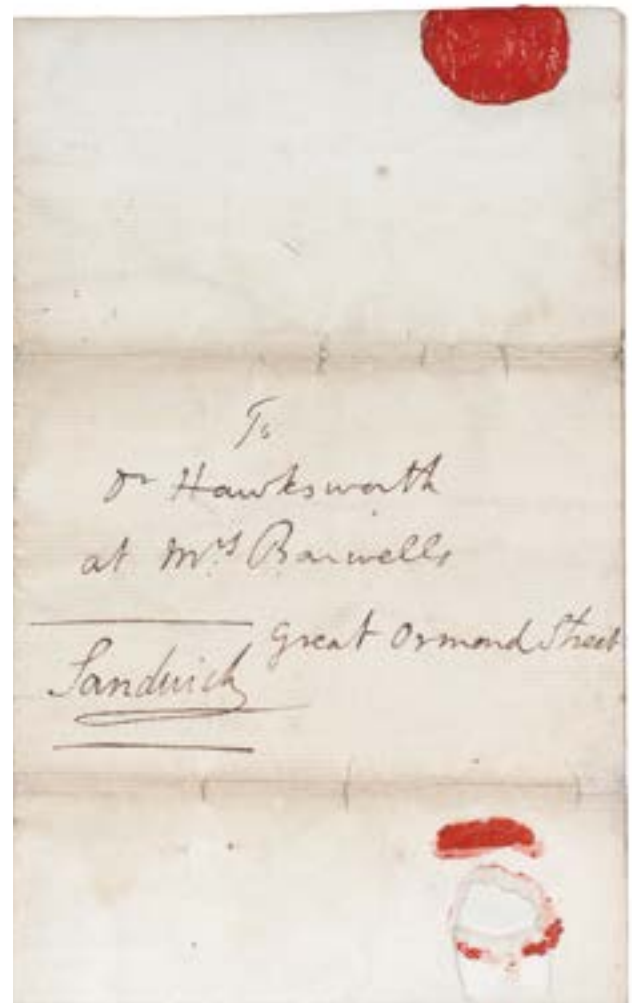 To
Dr Hawksworth
at Mrs Barwells
Great Ormond Street
Sandwich